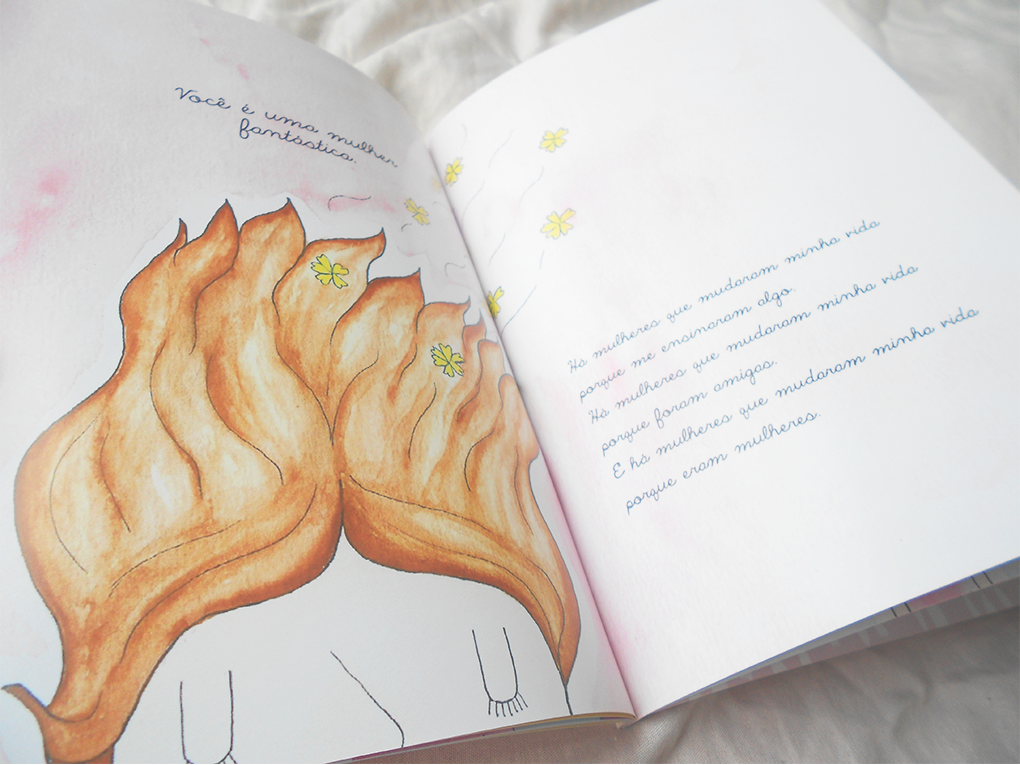 Você é uma mulher
fantástica.
Há mulheres que mudaram minha vida
porque me ensinaram algo.
Há mulheres que mudaram minha vida
porque foram amigas.
E há mulheres que mudaram minha vida
porque eram mulheres.